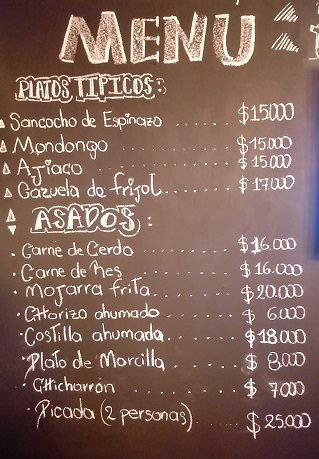 MENU
PLATOS TIPICOS:
Sancocho de Espinazo ........ $15.000
Mondongo ........ $15.000
Ajiaco ........ $15.000
Cazuela de frijol ........ $17.000
ASADOS:
Carne de Cerdo ........ $16.000
Carne de Res ........ $16.000
Mojarra frita ........ $20.000
Chorizo ahumado ........ $ 6.000
Costilla ahumada ........ $18.000
Plato de Morcilla ........ $ 8.000
Chicharrón ........ $ 7.000
Picada (2 personas) ........ $25.000